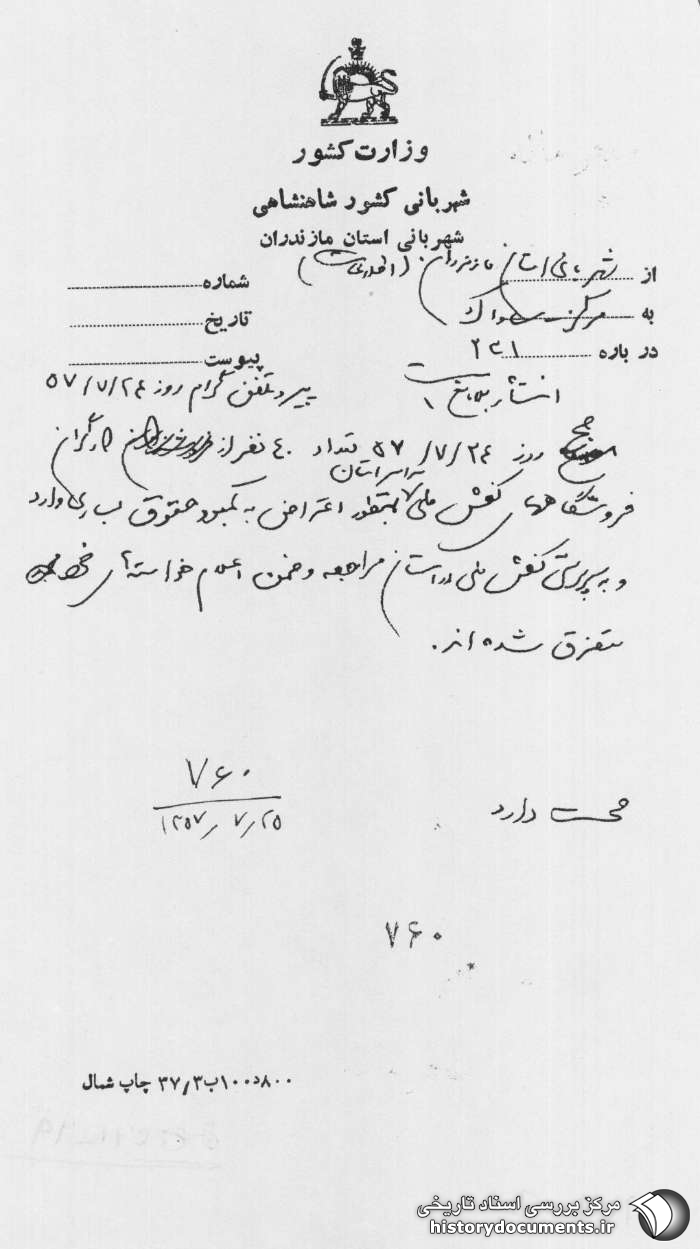 وزارت کشور
شهربانی کشور شاهنشاهی
شهربانی استان مازندران
از شهربانی استان مازندران (اطلاعات)
شماره
به مرکز ساواک
تاریخ
در باره ۲۳۱
پیوست
انتشار بلادرنگ ۱
پیرو تلفن گرام روز ۵۷/۷/۲۴
صبح روز ۵۷/۷/۲۴ تعداد ۴۰ نفر از کارگران
سراسر استان
فروشگاههای کفش ملی بمنظور اعتراض به کمبود حقوق بساری وارد
و به سرپرستی کفش ملی در استان مراجعه و ضمن اعلام خواسته های خود
متفرق شده اند.
صحت دارد
۷۶۰
۱۳۵۷/۷/۲۵
۷۶۰
۸۰۰د۱۰۰ب۳/۳۷ چاپ شمال
مرکز بررسی اسناد تاریخی
historydocuments.ir